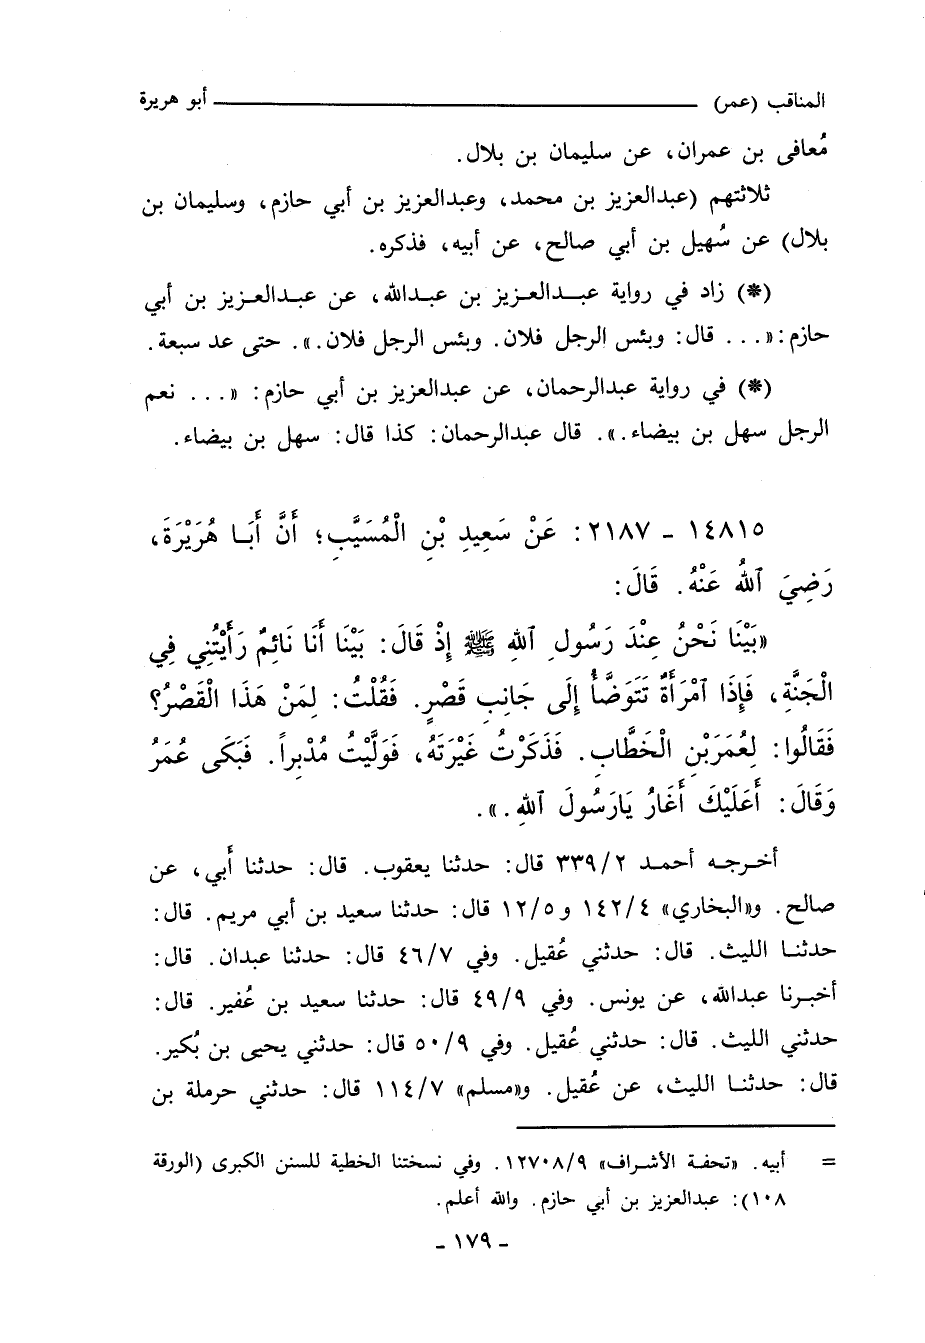 المناقب (عمر) ــــــــــــــــــــــــــــــــ أبو هريرة
مُعافى بن عمران، عن سليمان بن بلال.
ثلاثتهم (عبدالعزيز بن محمد، وعبدالعزيز بن أبي حازم، وسليمان بن
بلال) عن سُهيل بن أبي صالح، عن أبيه، فذكره.
(*) زاد في رواية عبدالعزيز بن عبدالله، عن عبدالعزيز بن أبي
حازم: «... قال: وبئس الرجل فلان. وبئس الرجل فلان.». حتى عد سبعة.
(*) في رواية عبدالرحمان، عن عبدالعزيز بن أبي حازم: «... نعم
الرجل سهل بن بيضاء.». قال عبدالرحمان: كذا قال: سهل بن بيضاء.
١٤٨١٥ - ٢١٨٧: عَنْ سَعِيدِ بْنِ الْمُسَيَّبِ؛ أَنَّ أَبَا هُرَيْرَةَ،
رَضِيَ ٱللهُ عَنْهُ. قَالَ:
«بَيْنَا نَحْنُ عِنْدَ رَسُولِ ٱللهِ ﷺ إِذْ قَالَ: بَيْنَا أَنَا نَائِمٌ رَأَيْتُنِي فِي
الْجَنَّةِ، فَإِذَا ٱمْرَأَةٌ تَتَوَضَّأُ إِلَى جَانِبِ قَصْرٍ. فَقُلْتُ: لِمَنْ هَذَا الْقَصْرُ؟
فَقَالُوا: لِعُمَرَبْنِ الْخَطَّابِ. فَذَكَرْتُ غَيْرَتَهُ، فَوَلَّيْتُ مُدْبِراً. فَبَكَى عُمَرُ
وَقَالَ: أَعَلَيْكَ أَغَارُ يَارَسُولَ ٱللهِ.».
أخرجه أحمد ٣٣٩/٢ قال: حدثنا يعقوب. قال: حدثنا أَبي، عن
صالح. و«البخاري» ١٤٢/٤ و١٢/٥ قال: حدثنا سعيد بن أبي مريم. قال:
حدثنا الليث. قال: حدثني عُقيل. وفي ٤٦/٧ قال: حدثنا عبدان. قال:
أخبرنا عبدالله، عن يونس. وفي ٤٩/٩ قال: حدثنا سعيد بن عُفير. قال:
حدثني الليث. قال: حدثني عُقيل. وفي ٥٠/٩ قال: حدثني يحيى بن بُكير.
قال: حدثنا الليث، عن عُقيل. و«مسلم» ١١٤/٧ قال: حدثني حرملة بن
= أبيه. «تحفة الأشراف» ١٢٧٠٨/٩. وفي نسختنا الخطية للسنن الكبرى (الورقة
١٠٨): عبدالعزيز بن أبي حازم. والله أعلم.
- ١٧٩ -